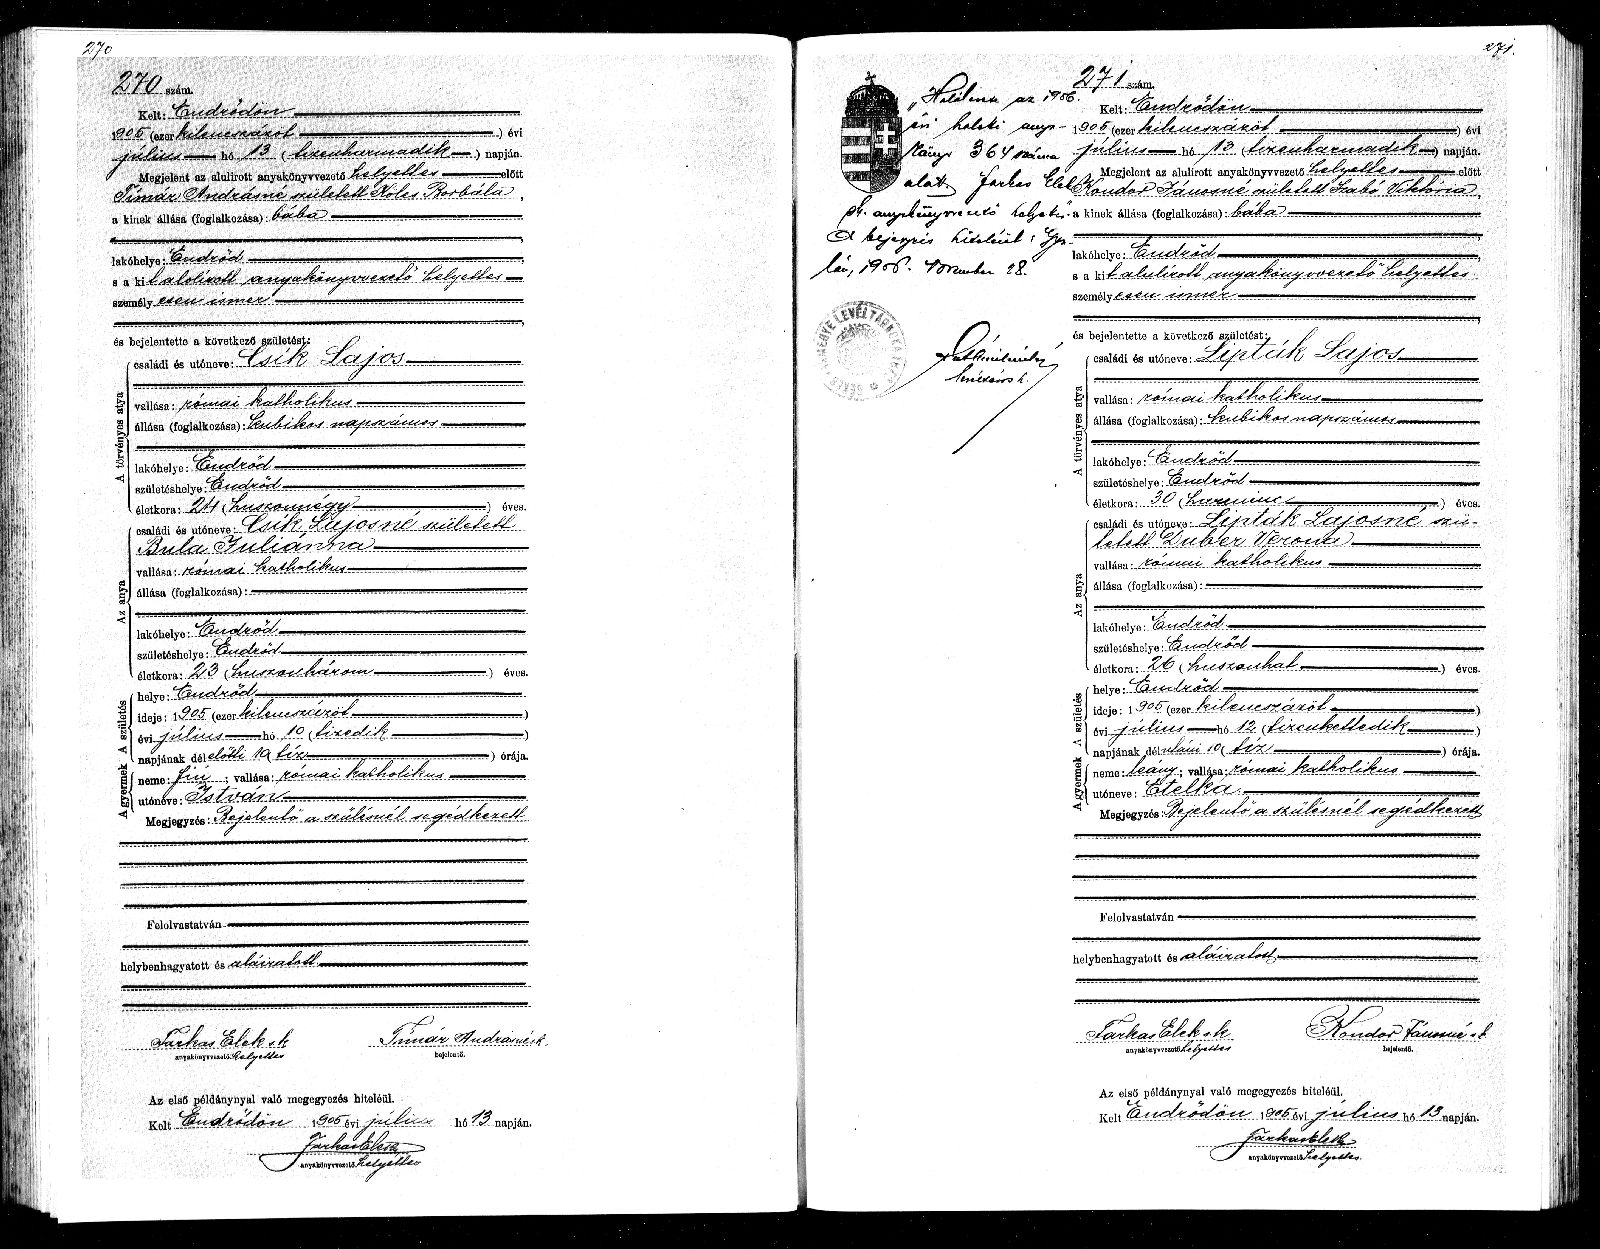 270
270 szám.
Kelt: Endrődön
1905 (ezer kilenczszázöt) évi
július hó 13 (tizenharmadik) napján.
Megjelent az alulirott anyakönyvvezető helyettes előtt
Timár Andrásné született Köles Borbála,
a kinek állása (foglalkozása): bába
lakóhelye: Endrőd
s a kit alólirott anyakönyvvezető helyettes
személyesen ismer
és bejelentette a következő születést:
A törvényes atya
családi és utóneve: Csík Lajos
vallása: római katholikus
állása (foglalkozása): kubikos napszámos
lakóhelye: Endrőd
születéshelye: Endrőd
életkora: 24 (huszonnégy) éves.
Az anya
családi és utóneve: Csík Lajosné született
Bula Juliánna
vallása: római katholikus
állása (foglalkozása):
lakóhelye: Endrőd
születéshelye: Endrőd
életkora: 23 (huszonhárom) éves.
A születés
helye: Endrőd
ideje: 1905 (ezer kilenczszázöt)
évi július hó 10 (tizedik)
napjának délelőtti 10 (tíz) órája.
A gyermek
neme: fiú; vallása: római katholikus
utóneve: István
Megjegyzés: Bejelentő a szülésnél segédkezett
Felolvastatván
helybenhagyatott és aláiratott
Farkas Elek sk Timár Andrásné sk.
anyakönyvvezető helyettes bejelentő.
Az első példánynyal való megegyezés hiteléül.
Kelt Endrődön 1905 évi július hó 13 napján.
Farkas Elek
anyakönyvvezető helyettes
271.
„Halálena az 1906.
évi halotti anya-
könyv 364 száma
alatt Farkas Elek
sk. anyakönyvvezető helyettes.
A bejegyzés hiteléül: Gyu-
la, 1906. november 28.
271 szám.
Kelt: Endrődön
1905 (ezer kilenczszázöt) évi
július hó 13 (tizenharmadik) napján.
Megjelent az alulirott anyakönyvvezető helyettes előtt
Kondor Jánosné született Szabó Viktória
a kinek állása (foglalkozása): bába
lakóhelye: Endrőd
s a kit alulirott anyakönyvvezető helyettes
személyesen ismer
és bejelentette a következő születést:
A törvényes atya
családi és utóneve: Lipták Lajos
vallása: római katholikus
állása (foglalkozása): kubikos napszámos
lakóhelye: Endrőd
születéshelye: Endrőd
életkora: 30 (harmincz) éves.
Az anya
családi és utóneve: Lipták Lajosné szü-
letett Duber Verona
vallása: római katholikus
állása (foglalkozása):
lakóhelye: Endrőd
születéshelye: Endrőd
életkora: 26 (huszonhat) éves.
A születés
helye: Endrőd
ideje: 1905 (ezer kilenczszázöt)
évi július hó 12 (tizenkettedik)
napjának délutáni 10 (tíz) órája.
A gyermek
neme: leány; vallása: római katholikus
utóneve: Etelka
Megjegyzés: Bejelentő a szülésnél segédkezett
Felolvastatván
helybenhagyatott és aláiratott
Farkas Elek sk Kondor Jánosné sk
anyakönyvvezető helyettes bejelentő.
Az első példánynyal való megegyezés hiteléül.
Kelt Endrődön 1905 évi július hó 13 napján.
Farkas Elek
anyakönyvvezető helyettes.